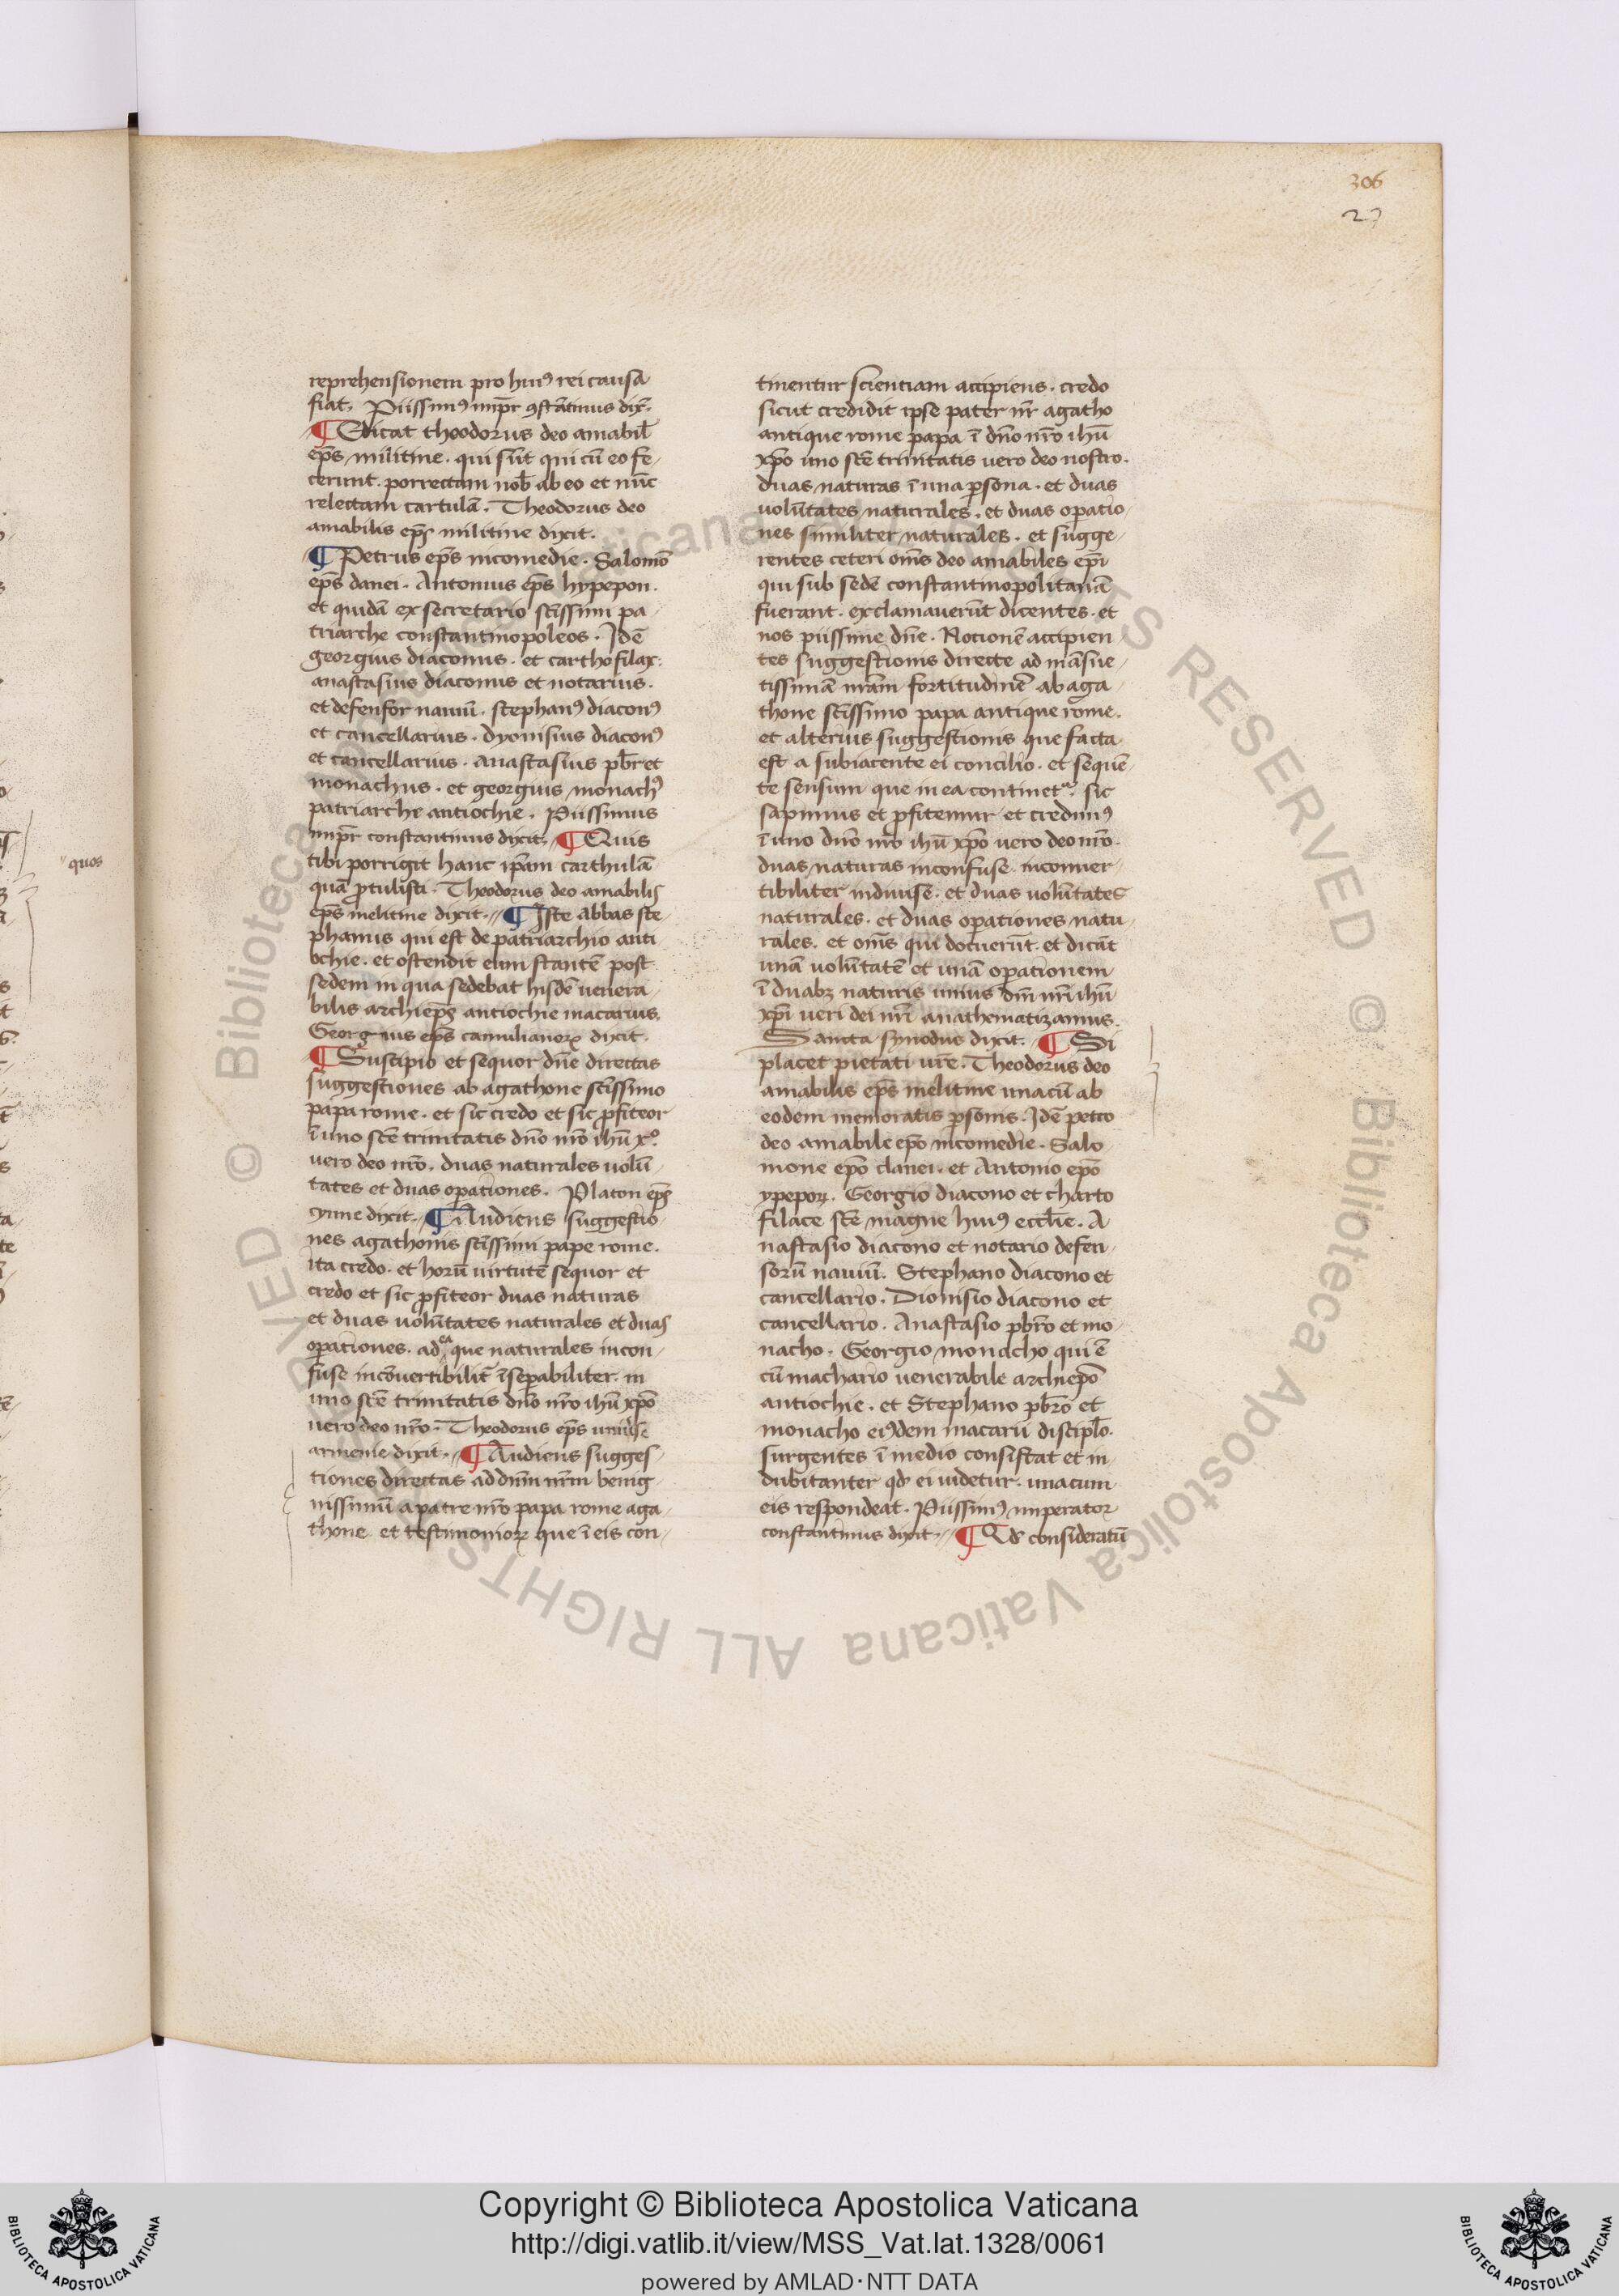 306
27
reprehensionem pro huiꝰ rei causa
fiat. Piissimꝰ imp̄r ꝯstātinus dix̄.
¶ Edicat theodorus deo amabil̄
ep̄s militine. qui sūt qui cū eo fe
cerunt. porrectam nob̄ ab eo et nūc
relectam cartulā. Theodorus deo
amabilis ep̄s militine dixit.
¶ Petrus ep̄s nicomedie. Salomō
ep̄s danei. Antonius ep̄s hypepon.
et quidā ex secretario sc̄issimi pa
triarche constantinopoleos. Idē
georgius diaconus. et carthofilax.
anastasius diaconus et notarius.
et defensor nauiū. stephanꝰ diaconꝰ
et cancellarius. dyonisius diaconꝰ
et cancellarius. anastasius pb̄r et
monachus. et georgius monachꝰ
patriarche antiochie. Piissimus
imp̄r constantinus dixit. ¶ Quis
tibi porrigit hanc ip̄am carthulā
quā ꝓtulisti. Theodorus deo amabilis
ep̄s melitine dixit. ¶ Iste abbas ste
phanus qui est de patriarchio anti
ochie. et ostendit eum stantē post
sedem in qua sedebat hisdē uenera
bilis archiep̄s antiochie macarius.
Georgius ep̄s camulianoꝝ dixit.
¶ Suscipio et sequor dn̄e directas
suggestiones ab agathone sc̄issimo
papa rome. et sic credo et sic ꝓfiteor
ī uno sc̄e trinitatis dn̄o nr̄o ihū xº.
uero deo nr̄o. duas naturales uolū
tates et duas oꝑationes. Platon ep̄s
cynne dixit. ¶ Audiens suggestio
nes agathonis sc̄issimi pape rome.
ita credo. et horū uirtutē sequor et
credo et sic ꝓfiteor duas naturas
et duas uolūtates naturales et duas
oꝑationes. ad ea que naturales incon
fuse incōuertibilit̄ īseꝑabiliter. in
uno sc̄e trinitatis dn̄o nr̄o ihū xp̄o
uero deo nr̄o. Theodorus ep̄s
armenie dixit. ¶ Audiens sugges
tiones directas ad dn̄m nr̄m benig
nissimū a patre nr̄o papa rome aga
thone et testimonioꝝ que ī eis con
tinentur scientiam accipiens. credo
sicut credidit ipse pater nr̄ agatho
antique rome papa ī dn̄o nr̄o ihū
xp̄o uno sc̄e trinitatis uero deo nostro.
duas naturas ī una ꝑsona. et duas
uolūtates naturales. et duas oꝑatio
nes similiter naturales. et sugge
rentes ceteri om̄s deo amabiles ep̄i
qui sub sede constantinopolitanā
fuerant. exclamauerūt dicentes. et
nos piissime dn̄e. Nocionē accipien
tes suggestionis directe ad māsue
tissimā nr̄am fortitudinē ab aga
thone sc̄issimo papa antique rome.
et alterius suggestionis que facta
est a subiacente ei concilio. et sequē
te sensum que in ea continetᷣ. sic
sapimus et ꝓfitemur et credimꝰ
ī uno dn̄o nr̄o ihū xp̄o uero deo nr̄o.
duas naturas inconfuse inconuer
tibiliter indiuise. et duas uolūtates
naturales. et duas oꝑationes natu
rales. et om̄s qui docuerūt et dicūt
unā uolūtatē et unā oꝑationem
ī duabꝫ naturis unius dn̄i nr̄i ihū
xp̄i ueri dei nr̄i anathematizamus.
Sancta synodus dixit. ¶ Si
placet pietati ur̄e. Theodorus deo
amabilis ep̄s melitine unacū ab
eodem memoratis ꝑsonis. Idē petro
deo amabile ep̄o nicomedie. Salo
mone ep̄o clanei. et Antonio ep̄o
ypepoꝝ. Georgio diacono et charto
filace sc̄e magne huiꝰ eccl̄ie. A
nastasio diacono et notario defen
sorū nauiū. Stephano diacono et
cancellario. Dionisio diacono et
cancellario. Anastasio pb̄ro et mo
nacho. Georgio monacho qui ē
cū machario uenerabile archiep̄o
antiochie. et Stephano pb̄ro et
monacho eiꝰdem macarii discipl̄o.
surgentes ī medio consistat et in
dubitanter qd̄ ei uidetur. unacum
eis respondeat. Piissimꝰ imperator
constantinus dixit. ¶ Qd̄ consideratū
quos
Copyright © Biblioteca Apostolica Vaticana
http://digi.vatlib.it/view/MSS_Vat.lat.1328/0061
powered by AMLAD·NTT DATA
BIBLIOTECA APOSTOLICA VATICANA
BIBLIOTECA APOSTOLICA VATICANA
© Biblioteca Apostolica Vaticana ALL RIGHTS RESERVED
© Biblioteca Apostolica Vaticana ALL RIGHTS RESERVED